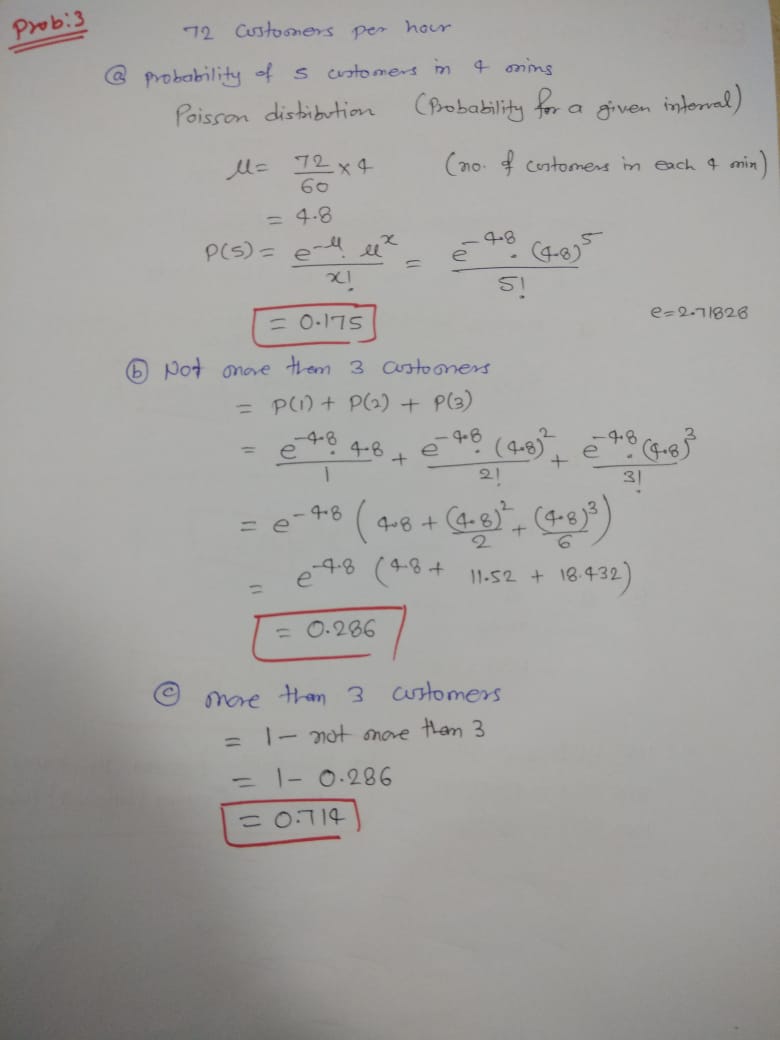 Prob:3
72 customers per hour
ⓐ probability of 5 customers in 4 mins
Poisson distribution (Probability for a given interval)
μ = 72/60 × 4 (no. of customers in each 4 min)
= 4.8
P(5) = e^-μ . μ^x / x! = e^-4.8 . (4.8)^5 / 5!
= 0.175
e=2.71828
ⓑ Not more them 3 customers
= P(1) + P(2) + P(3)
= e^-4.8 . 4.8 / 1 + e^-4.8 . (4.8)^2 / 2! + e^-4.8 . (4.8)^3 / 3!
= e^-4.8 ( 4.8 + (4.8)^2 / 2 + (4.8)^3 / 6 )
= e^-4.8 (4.8 + 11.52 + 18.432)
= 0.286
ⓒ more than 3 customers
= 1 - not more them 3
= 1 - 0.286
= 0.714